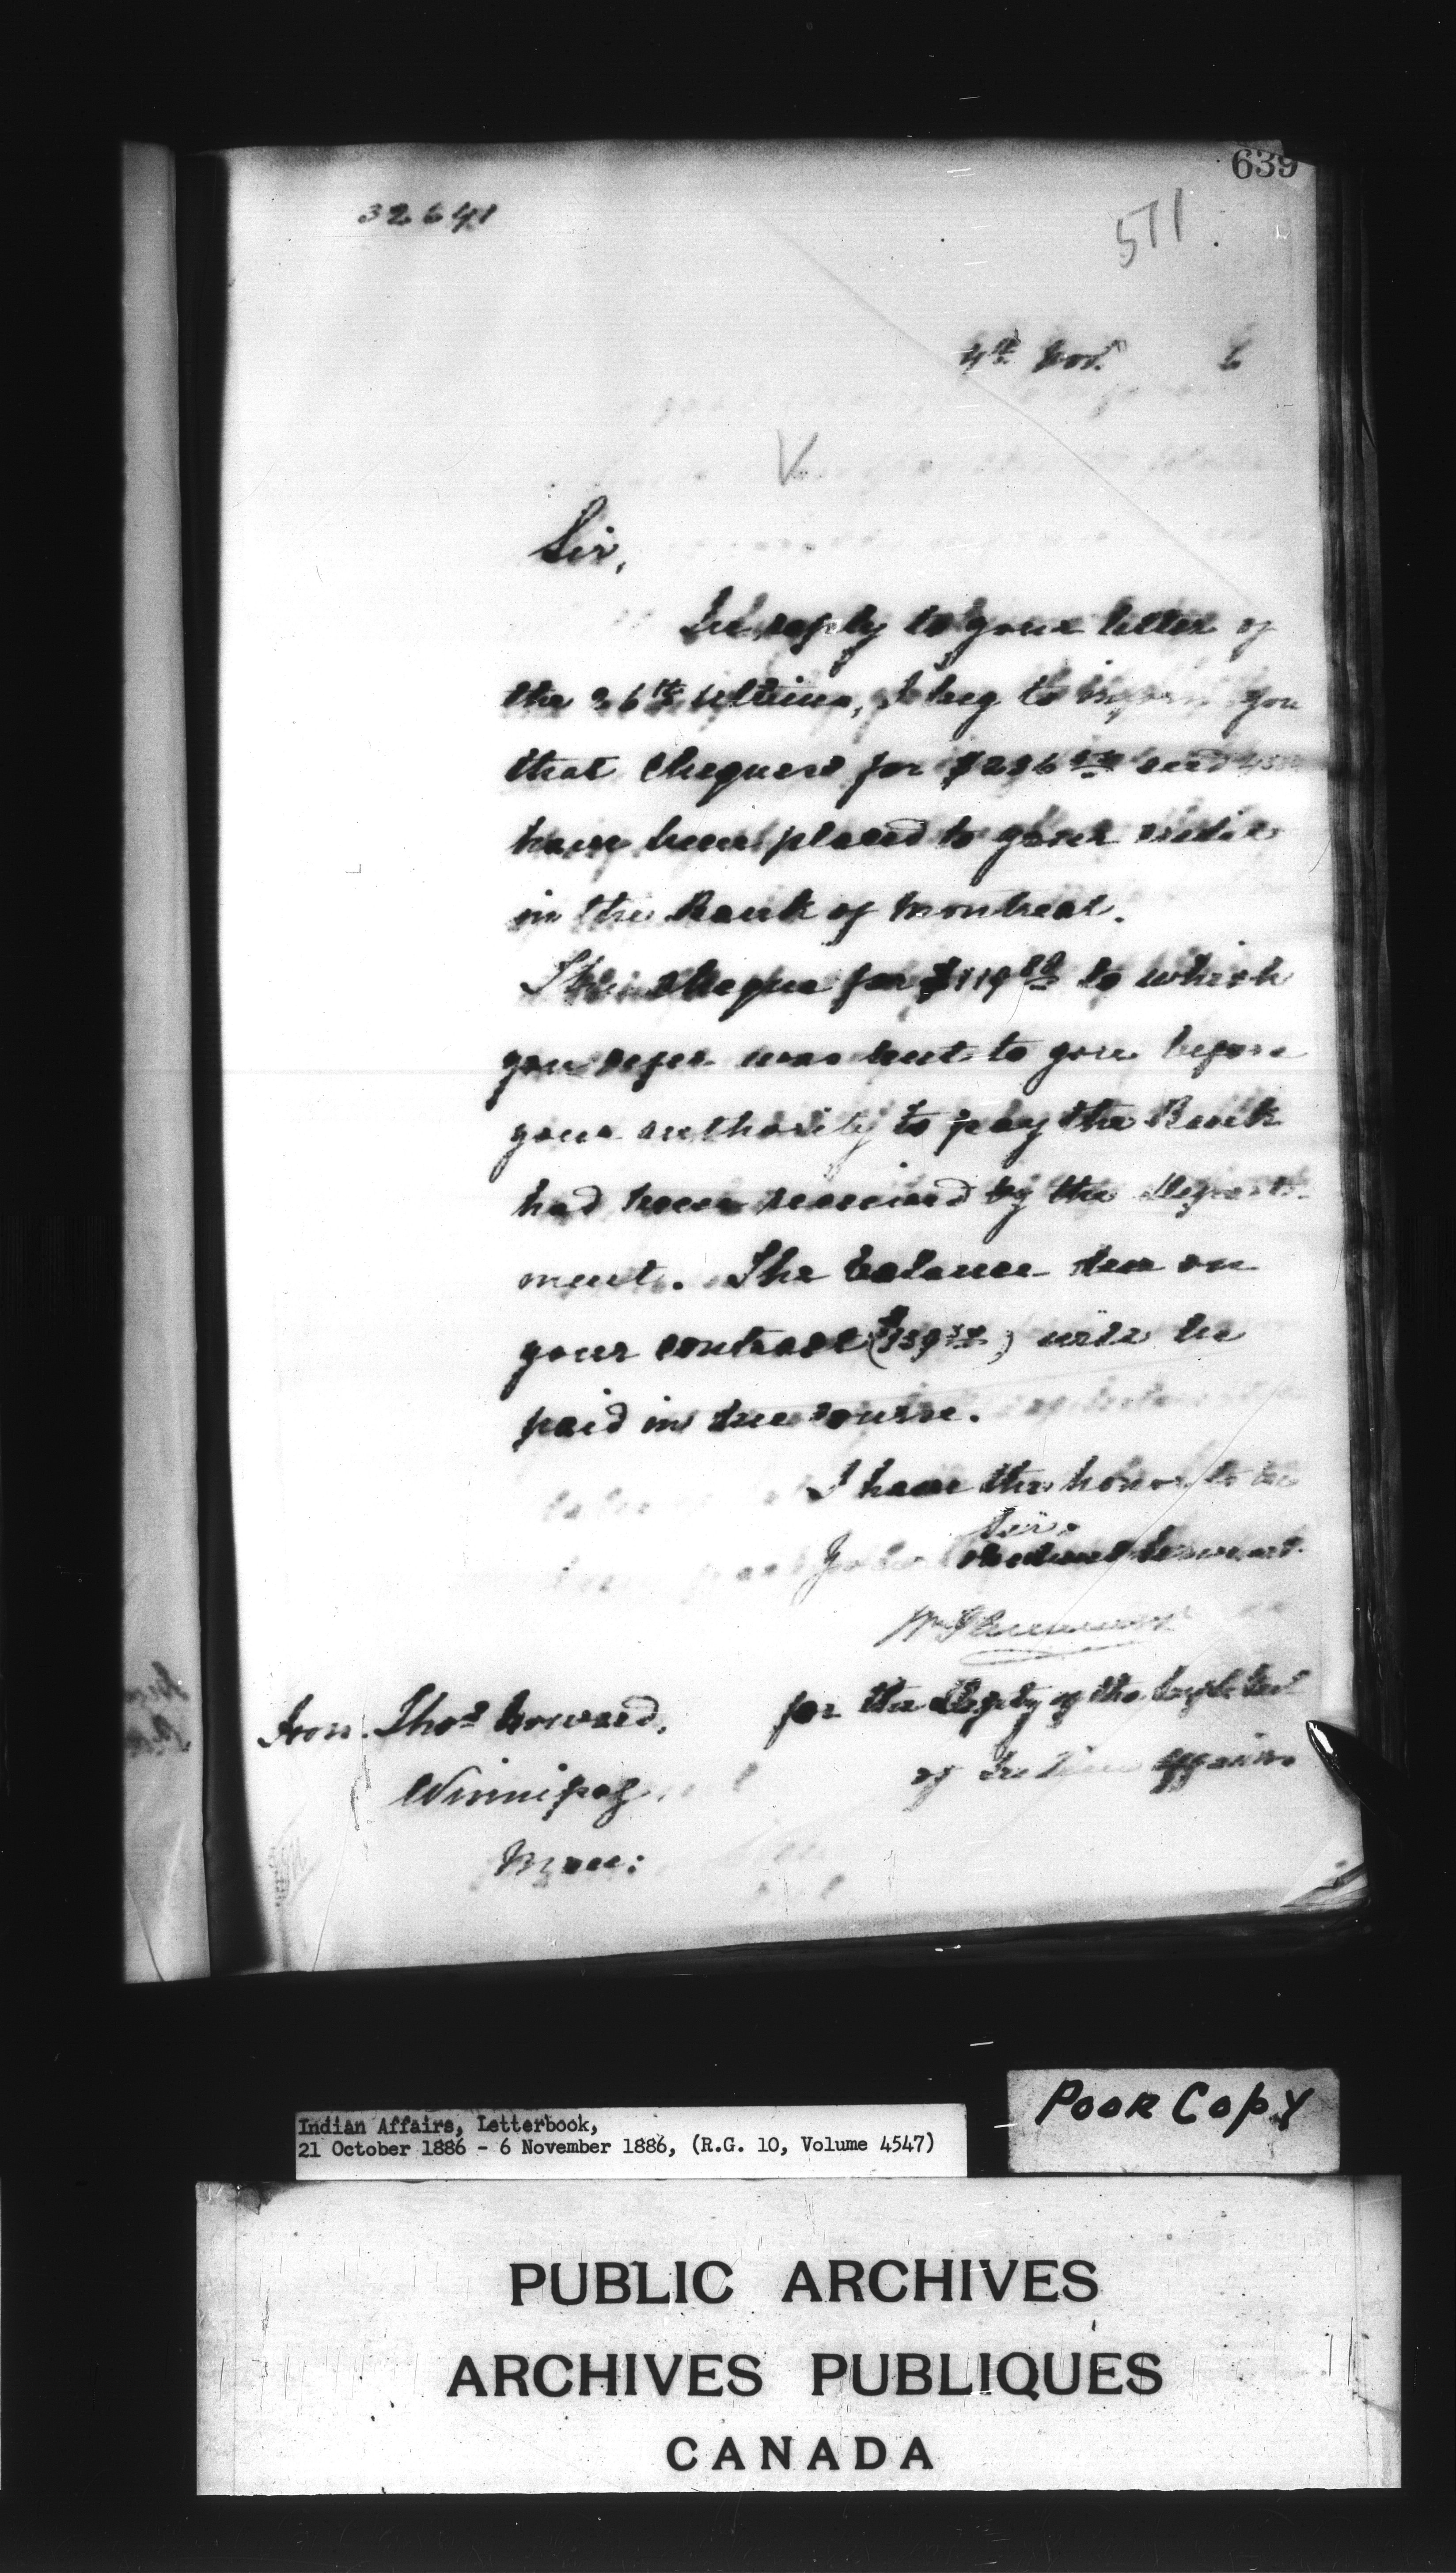 639
32641
571
4th Nov. 6
Sir,
In reply to your letter of
the 26th ultimo, I beg to inform you
that cheques for $286 and
have been placed to your credit
in the Bank of Montreal.
The cheque for $119 to which
you refer was sent to you before
your authority to pay the Bank
had been received by the Depart-
ment. The balance due on
your contract will be
paid in due course.
I have the honor to be
Sir,
Your obedient Servant
for the Deputy of the Supt. Genl.
of Indian Affairs
Hon. Thos Howard,
Winnipeg
Man:
POOR COPY
Indian Affairs, Letterbook,
21 October 1886 - 6 November 1886, (R.G. 10, Volume 4547)
PUBLIC ARCHIVES
ARCHIVES PUBLIQUES
CANADA